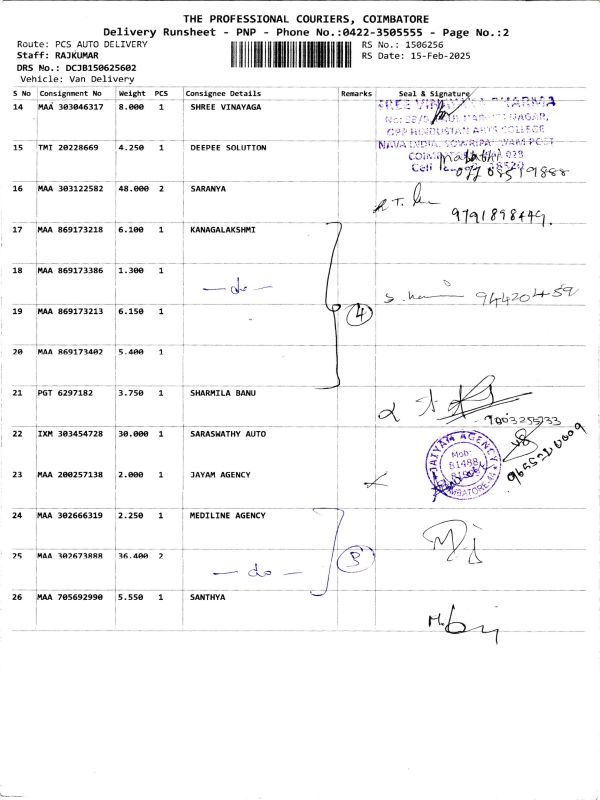 THE PROFESSIONAL COURIERS, COIMBATORE
Delivery Runsheet - PNP - Phone No.:0422-3505555 - Page No.:2
Route: PCS AUTO DELIVERY RS No.: 1506256
Staff: RAJKUMAR RS Date: 15-Feb-2025
DRS No.: DCJB150625602
Vehicle: Van Delivery
S No Consignment No Weight PCS Consignee Details Remarks Seal & Signature
14 MAA 303046317 8.000 1 SHREE VINAYAGA
SREE VINAYAKA PHARMA
NAGAR,
OPP HINDUSTAN ARTS COLLEGE
15 TMI 20228669 4.250 1 DEEPEE SOLUTION
NAVA INDIA, SOWRIPALAYAM POST
Cell
16 MAA 303122582 48.000 2 SARANYA
9791898449.
17 MAA 869173218 6.100 1 KANAGALAKSHMI
18 MAA 869173386 1.300 1
- do -
944204459
19 MAA 869173213 6.150 1
4
20 MAA 869173402 5.400 1
21 PGT 6297182 3.750 1 SHARMILA BANU
7003255233
22 IXM 303454728 30.000 1 SARASWATHY AUTO
JAIYAM AGENCY
Mob:
23 MAA 200257138 2.000 1 JAYAM AGENCY
24 MAA 302666319 2.250 1 MEDILINE AGENCY
25 MAA 302673888 36.400 2
- do -
26 MAA 705692990 5.550 1 SANTHYA